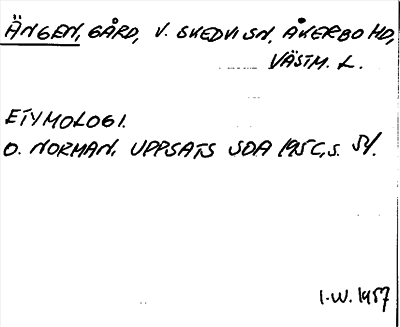 ÄNGEN, GÅRD, V. SKEDVI SN, ÅKERBO HD,
VÄSTM. L.
ETYMOLOGI.
O. NORMAN, UPPSATS SDA 1956, S. 54.
I.W. 1957